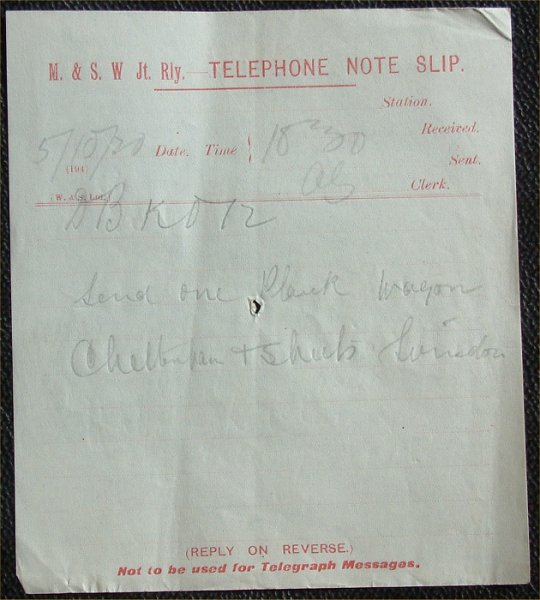 M. & S. W Jt. Rly. — TELEPHONE NOTE SLIP.
Station.
5/10/30 Date. Time 18 30 Received.
(104) Sent.
Clerk.
(W. & S. Ltd.)
D B K D T2
Send one Plank Wagon
Cheltenham + 5 sheets Swindon
(REPLY ON REVERSE.)
Not to be used for Telegraph Messages.